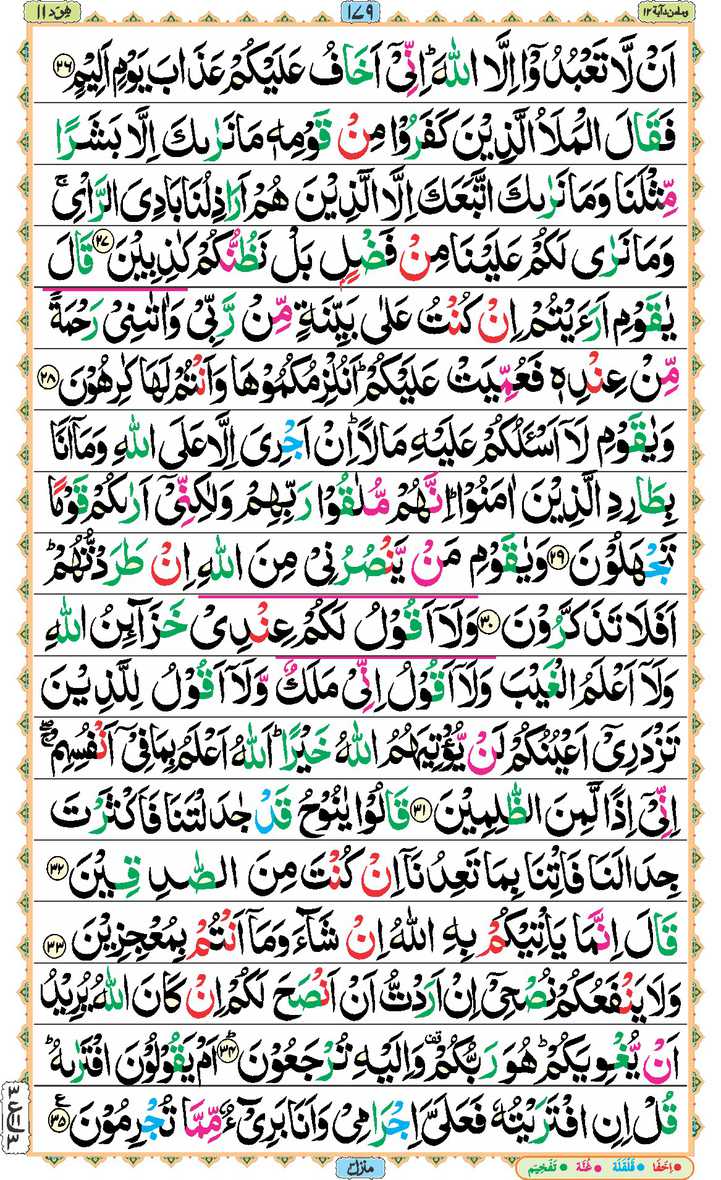 ومامن دآبة ١٢ ١٧٩ هود ١١
اَنْ لَّا تَعْبُدُوْٓا اِلَّا اللّٰهَ ؕ اِنِّیْۤ اَخَافُ عَلَیْكُمْ عَذَابَ یَوْمٍ اَلِیْمٍ ۲۶
فَقَالَ الْمَلَاُ الَّذِیْنَ كَفَرُوْا مِنْ قَوْمِهٖ مَا نَرٰىكَ اِلَّا بَشَرًا
مِّثْلَنَا وَمَا نَرٰىكَ اتَّبَعَكَ اِلَّا الَّذِیْنَ هُمْ اَرَاذِلُنَا بَادِیَ الرَّاْیِ ۚ
وَمَا نَرٰی لَكُمْ عَلَیْنَا مِنْ فَضْلٍۭ بَلْ نَظُنُّكُمْ كٰذِبِیْنَ ۲۷ قَالَ
یٰقَوْمِ اَرَءَیْتُمْ اِنْ كُنْتُ عَلٰی بَیِّنَةٍ مِّنْ رَّبِّیْ وَاٰتٰىنِیْ رَحْمَةً
مِّنْ عِنْدِهٖ فَعُمِّیَتْ عَلَیْكُمْ ؕ اَنُلْزِمُكُمُوْهَا وَاَنْتُمْ لَهَا كٰرِهُوْنَ ۲۸
وَیٰقَوْمِ لَاۤ اَسْئَلُكُمْ عَلَیْهِ مَالًا ؕ اِنْ اَجْرِیَ اِلَّا عَلَی اللّٰهِ وَمَاۤ اَنَا
بِطَارِدِ الَّذِیْنَ اٰمَنُوْا ؕ اِنَّهُمْ مُّلٰقُوْا رَبِّهِمْ وَلٰكِنِّیْۤ اَرٰىكُمْ قَوْمًا
تَجْهَلُوْنَ ۲۹ وَیٰقَوْمِ مَنْ یَّنْصُرُنِیْ مِنَ اللّٰهِ اِنْ طَرَدْتُّهُمْ ؕ
اَفَلَا تَذَكَّرُوْنَ ۳۰ وَلَاۤ اَقُوْلُ لَكُمْ عِنْدِیْ خَزَآئِنُ اللّٰهِ
وَلَاۤ اَعْلَمُ الْغَیْبَ وَلَاۤ اَقُوْلُ اِنِّیْ مَلَكٌ وَّلَاۤ اَقُوْلُ لِلَّذِیْنَ
تَزْدَرِیْۤ اَعْیُنُكُمْ لَنْ یُّؤْتِیَهُمُ اللّٰهُ خَیْرًا ؕ اَللّٰهُ اَعْلَمُ بِمَا فِیْۤ اَنْفُسِهِمْ ۖۚ
اِنِّیْۤ اِذًا لَّمِنَ الظّٰلِمِیْنَ ۳۱ قَالُوْا یٰنُوْحُ قَدْ جٰدَلْتَنَا فَاَكْثَرْتَ
جِدَالَنَا فَاْتِنَا بِمَا تَعِدُنَاۤ اِنْ كُنْتَ مِنَ الصّٰدِقِیْنَ ۳۲
قَالَ اِنَّمَا یَاْتِیْكُمْ بِهِ اللّٰهُ اِنْ شَآءَ وَمَاۤ اَنْتُمْ بِمُعْجِزِیْنَ ۳۳
وَلَا یَنْفَعُكُمْ نُصْحِیْۤ اِنْ اَرَدْتُّ اَنْ اَنْصَحَ لَكُمْ اِنْ كَانَ اللّٰهُ یُرِیْدُ
اَنْ یُّغْوِیَكُمْ ؕ هُوَ رَبُّكُمْ ۫ وَاِلَیْهِ تُرْجَعُوْنَ ۳۴ ؕ اَمْ یَقُوْلُوْنَ افْتَرٰىهُ ؕ
قُلْ اِنِ افْتَرَیْتُهٗ فَعَلَیَّ اِجْرَامِیْ وَاَنَا بَرِیْٓءٌ مِّمَّا تُجْرِمُوْنَ ۳۵ ع
منزل ۳
اِخفَا قَلْقَلَة غُنَّة تَفْخِيْم